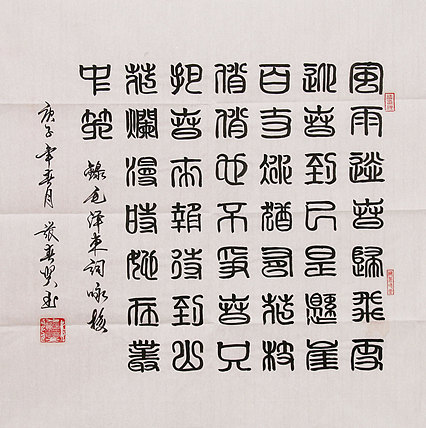 風雨送春歸飛雪
迎春到已是懸崖
百丈冰猶有花枝
俏俏也不爭春只
把春來報待到山
花爛漫時她在叢
中笑
錄毛澤東詞咏梅
庚子年春月